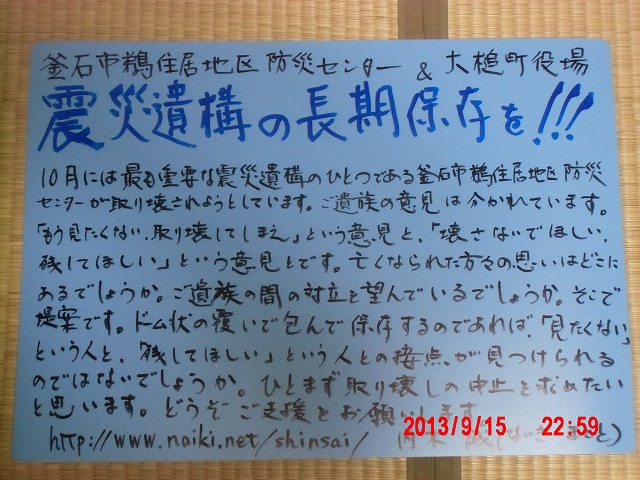 釜石市鵜住居地区防災センター & 大槌町役場
震災遺構の長期保存を!!!
10月には最も重要な震災遺構のひとつである釜石市鵜住居地区防災
センターが取り壊されようとしています。ご遺族の意見は分かれています。
「もう見たくない、取り壊してしまえ」という意見と、「壊さないでほしい、
残してほしい」という意見とです。亡くなられた方々の思いはどこに
あるでしょうか。ご遺族の間の対立を望んでいるでしょうか。そこで
提案です。ドーム状の覆いで包んで保存するのであれば、「見たくない」
という人と、「残してほしい」という人との接点が見つけられる
のではないでしょうか。ひとまず取り壊しの中止を求めたい
と思います。どうぞご支援をお願いします
http://www.naiki.net/shinsai/
2013/9/15 22:59